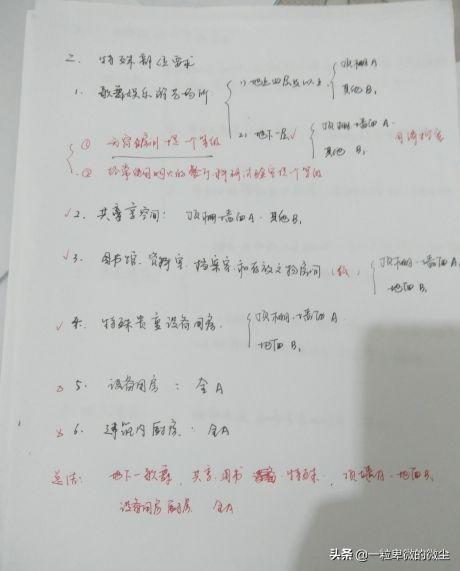 二、特殊部位要求
1. 歌舞娱乐游艺场所
1) 地上四层及以上 顶棚A
其他B₁
2) 地下一层√ 顶棚墙面A
其他B₁
① 无窗房间 提一个等级
② 经常使用明火的餐厅、科研试验室提个等级
√2. 共享空间: 顶棚墙面A. 其他B₁
√3. 图书馆、资料室、档案室、和存放文物房间 (纸) 顶棚、墙面A
地面B₁
√4. 特殊贵重设备用房 顶棚、墙面A
地面B₁
5. 设备用房: 全A
6. 建筑内厨房. 全A
总结: 地下一歌舞、共享、图书 特殊. 顶墙A. 地面B₁
设备用房 厨房 全A
头条 @一粒卑微的微尘